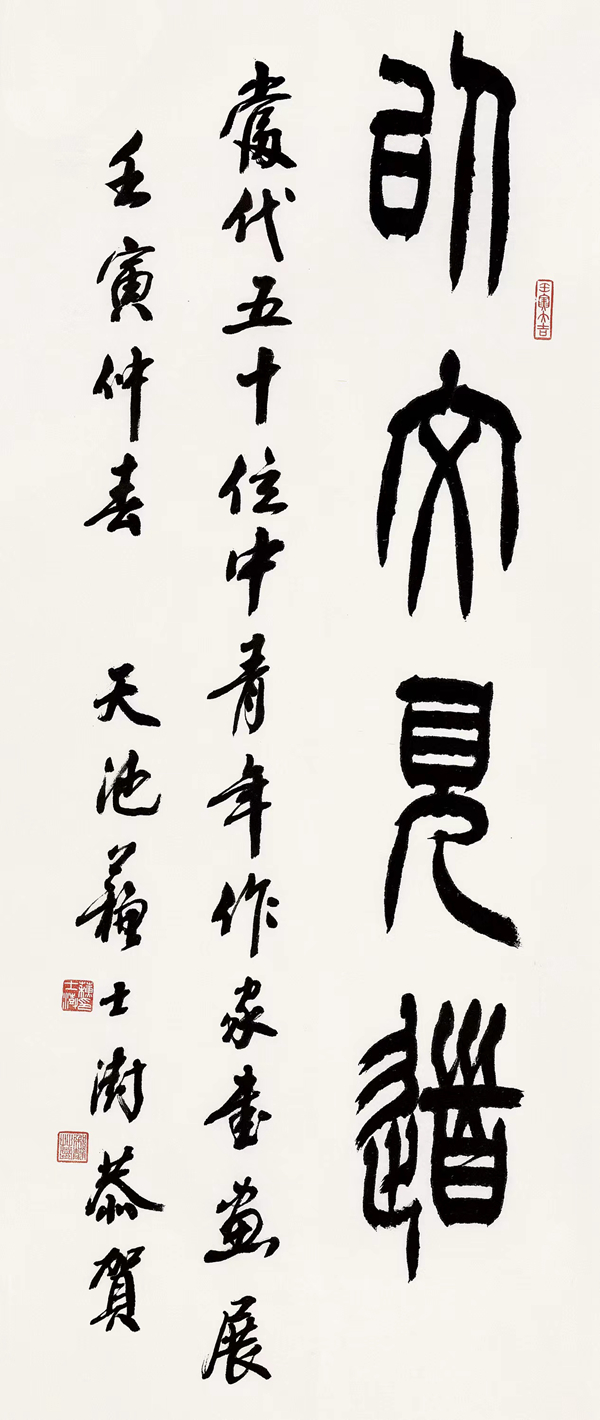 壬寅大吉
以文見道
當代五十位中青年作家書畫展
壬寅仲春 天池蘇士澍恭賀